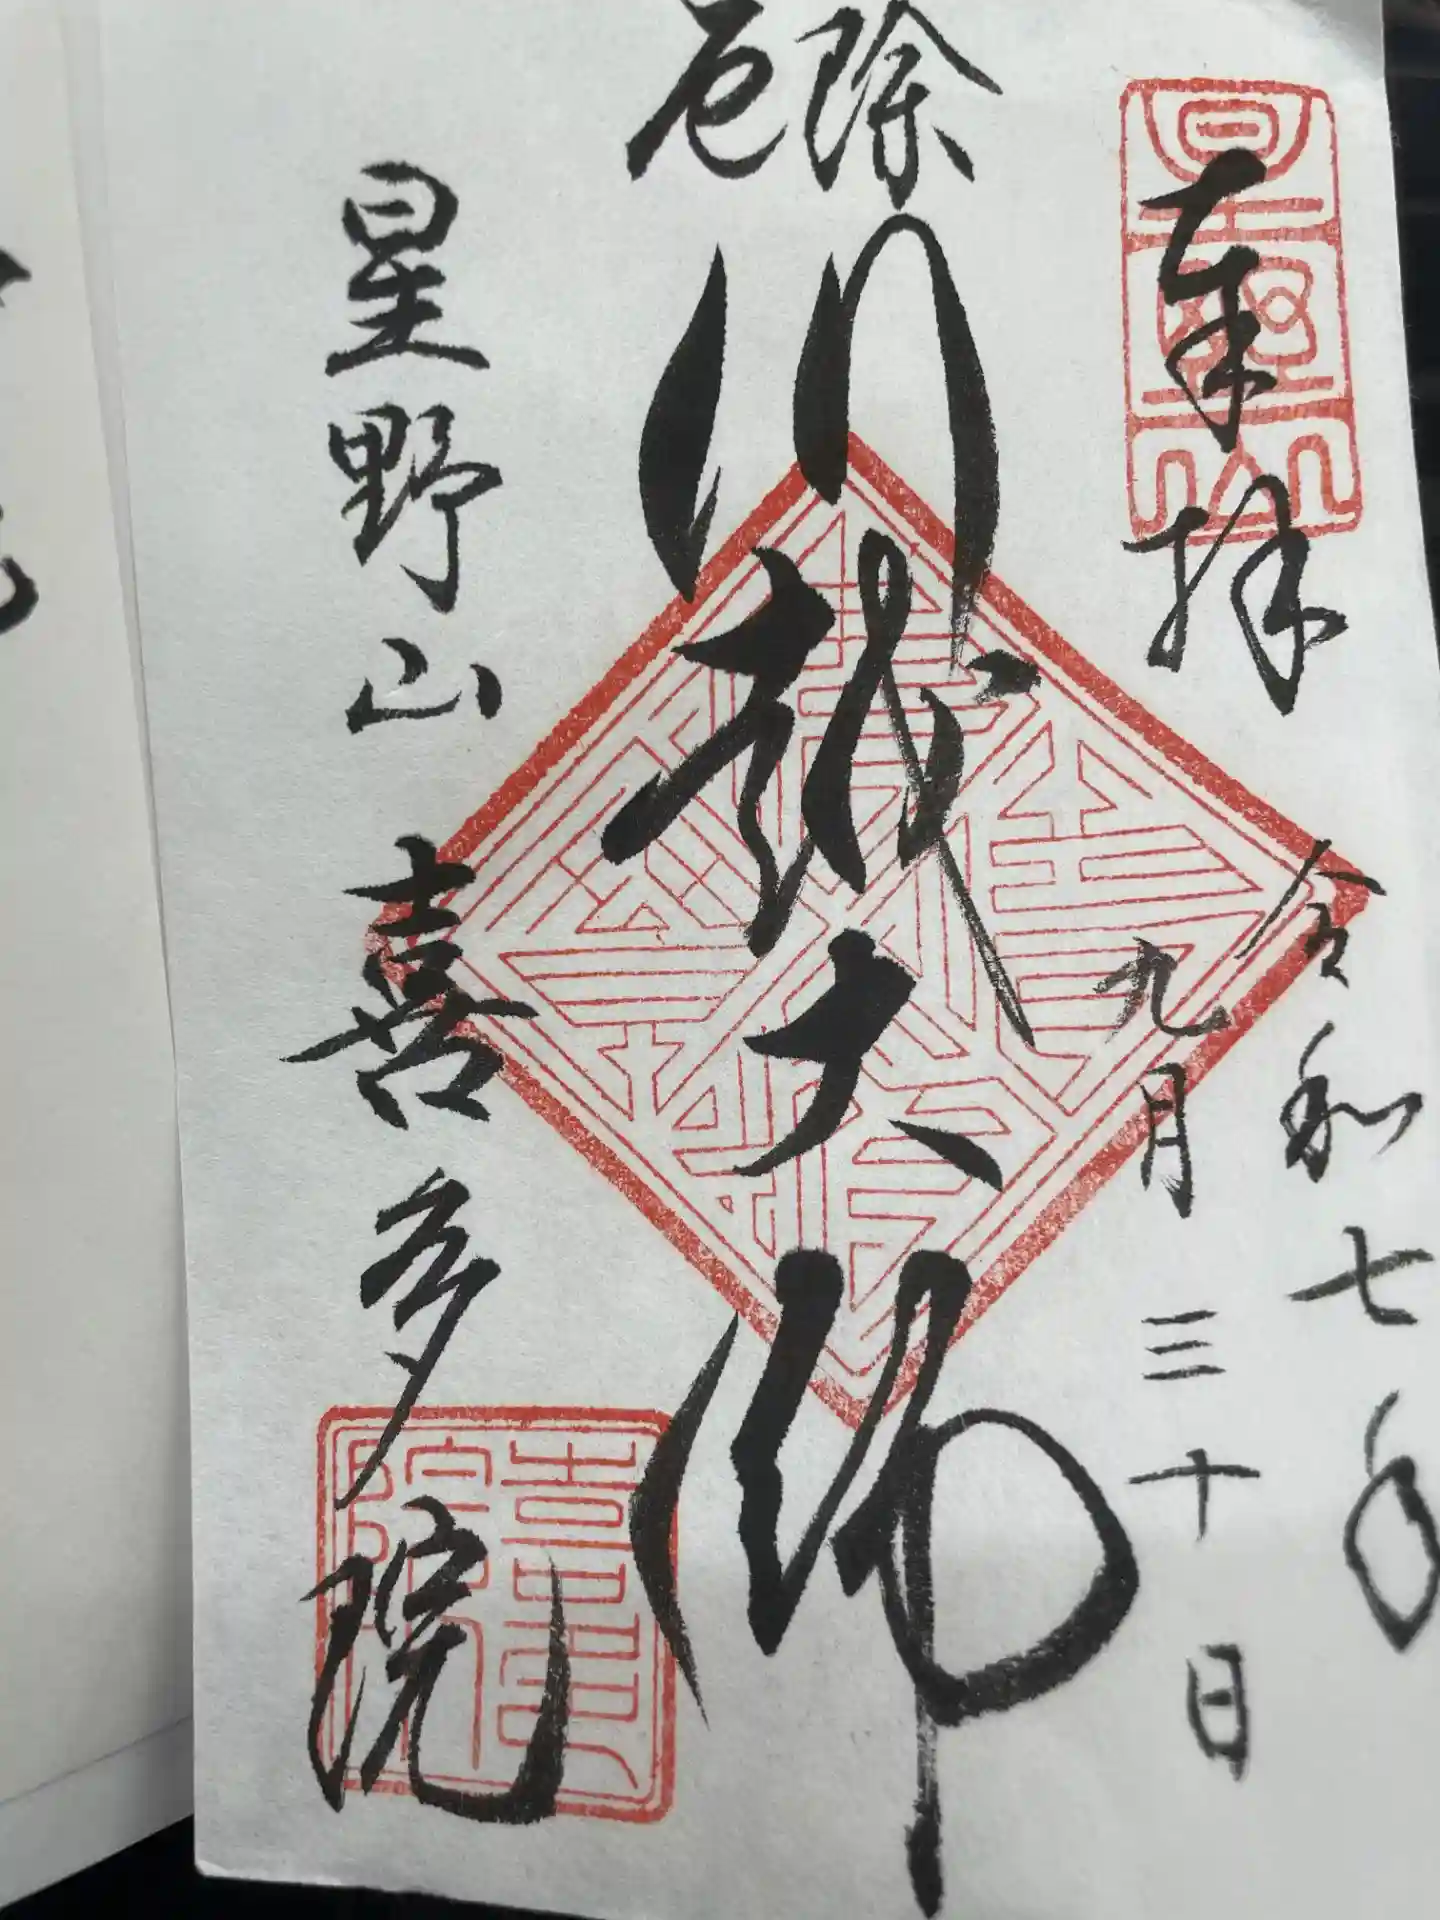 奉拝
令和七年
九月三十日
厄除
川越大師
星野山喜多院